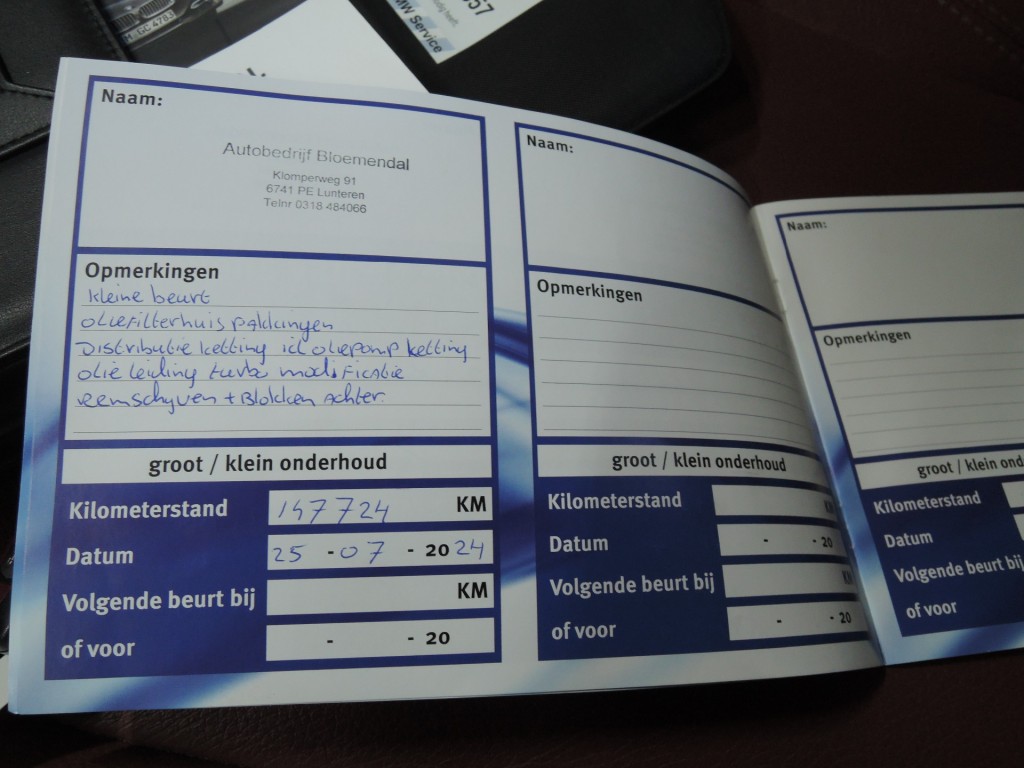 M·GC 4783
657
MW Service
Naam:
Autobedrijf Bloemendal
Klomperweg 91
6741 PE Lunteren
Telnr 0318 484066
Opmerkingen
kleine beurt
oliefilterhuis pakkingen
Distributie ketting icl oliepomp ketting
olie leiding turbo modificatie
reemschyven + Blokken Achter.
groot / klein onderhoud
Kilometerstand 147724 KM
Datum 25 - 07 - 20 24
Volgende beurt bij KM
of voor - - 20
Naam:
Opmerkingen
groot / klein onderhoud
Kilometerstand
Datum - - 20
Volgende beurt bij
of voor - - 20
Naam:
Opmerkingen
groot / klein ond
Kilometerstand
Datum
Volgende beurt bij
of voor